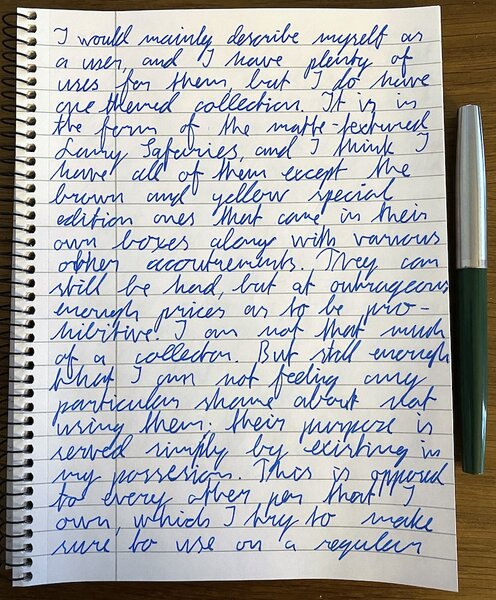 I would mainly describe myself as
a user, and I have plenty of
uses for them, but I do have
one themed collection. It is in
the form of the matte-textured
Lamy Safaries, and I think I
have all of them except the
brown and yellow special
edition ones that came in their
own boxes along with various
other accoutrements. They can
still be had, but at outrageous
enough prices as to be pro-
hibitive. I am not that much
of a collector. But still enough
that I am not feeling any
particular shame about not
using them: their purpose is
served simply by existing in
my possession. This is opposed
to every other pen that I
own, which I try to make
sure to use on a regular